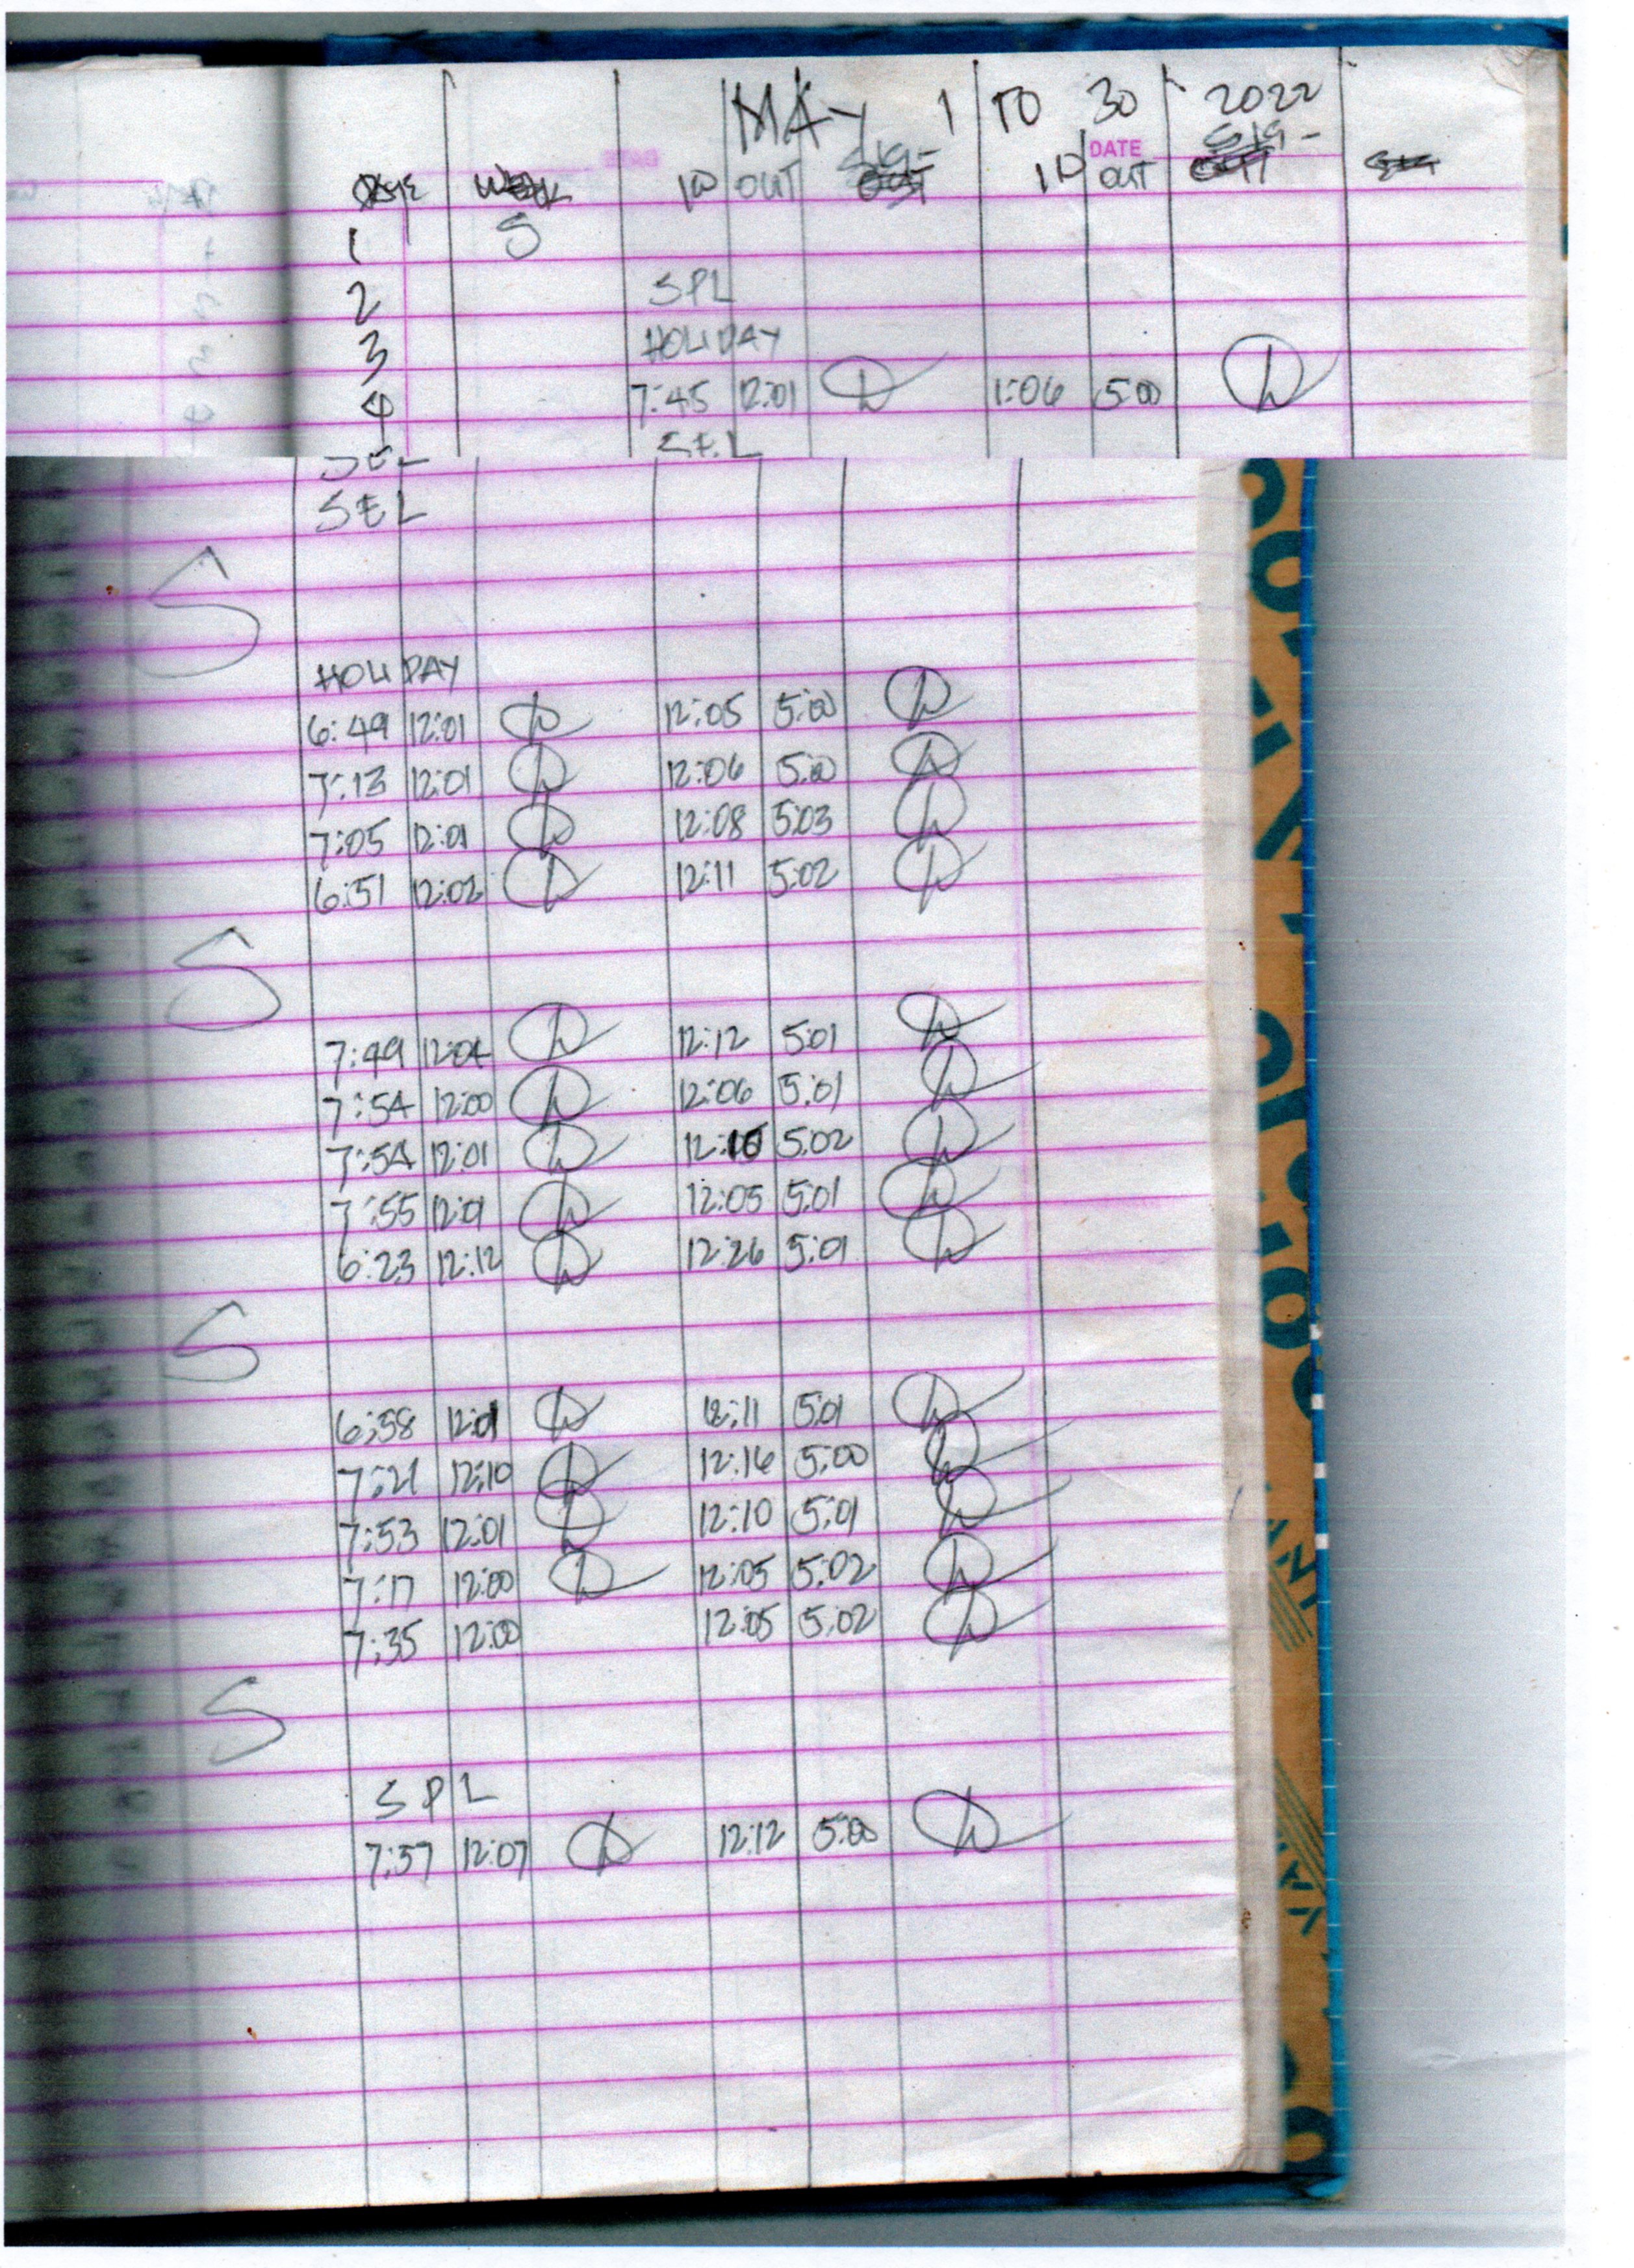 MAY 1 TO 30 2022
DATE
DATE WEEK IN OUT SIG- IN OUT SIG-
1 S
2 SPL
3 HOLIDAY
4 7:45 12:01 1:06 5:00
SEL SEL
SEL
S
HOLIDAY
6:49 12:01 12:05 5:00
7:13 12:01 12:06 5:00
7:05 12:01 12:08 5:03
6:51 12:02 12:11 5:02
S
7:49 12:04 12:12 5:01
7:54 12:00 12:06 5:01
7:54 12:01 12:10 5:02
7:55 12:01 12:05 5:01
6:23 12:12 12:26 5:01
S
6:58 12:01 12:11 5:01
7:21 12:10 12:16 5:00
7:53 12:01 12:10 5:01
7:17 12:00 12:05 5:02
7:35 12:00 12:05 5:02
S
SPL
7:57 12:07 12:12 5:00